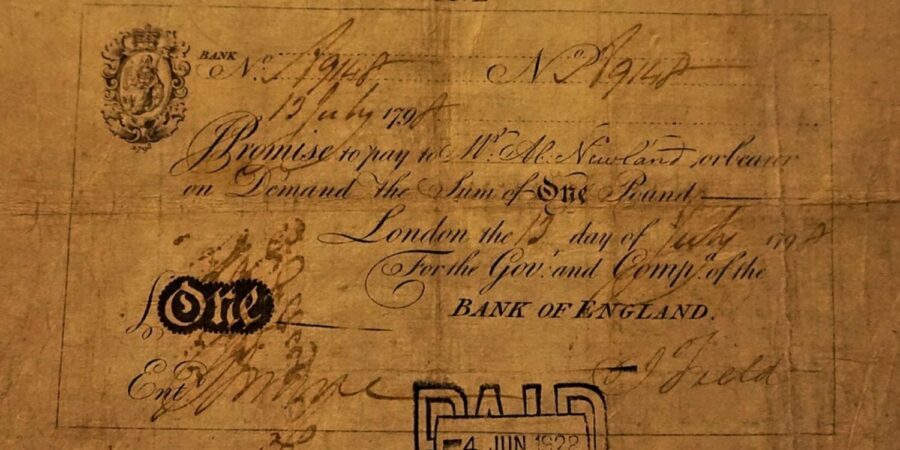 BANK
No. 9148 No 9148
13 July 1798
Promise to pay to Mr. Ab. Newland, or bearer
on Demand the Sum of One Pound
London the 13 day of July 1798
For the Govr. and Compa. of the
BANK OF ENGLAND.
£ One
Entd.
J Field
PAID
4 JUN 1922